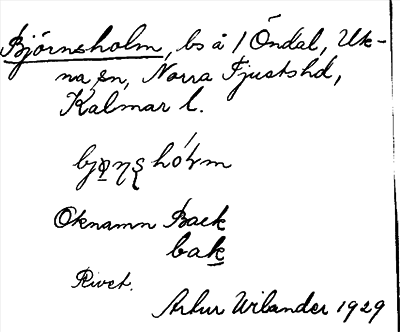 Björnsholm, bs å 1 Öndal, Uk-
na sn, Norra Tjustshd,
Kalmar l.
Öknamn Back
bak
Rivet.
Artur Wilander 1929